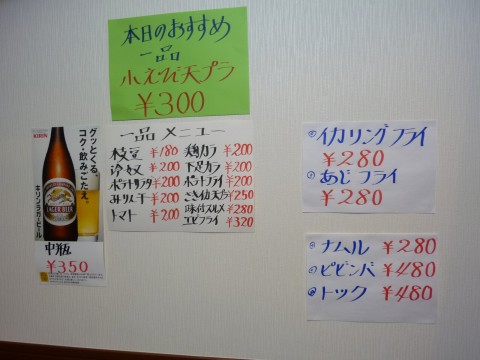 本日のおすすめ
一品
小えび天プラ
¥300
KIRIN
グッとくる、
コク・飲みごたえ。
キリンラガービール
LAGER BEER
中瓶
¥350
一品メニュー
枝豆 ¥180
冷奴 ¥200
ポテトサラダ ¥200
みりん干 ¥200
トマト ¥200
鶏カラ ¥200
下足カラ ¥200
ポテトフライ ¥200
¥250
味付スルメ ¥280
エビフライ ¥320
イカリングフライ
¥280
あじフライ
¥280
ナムル ¥280
ビビンバ ¥480
トック ¥480